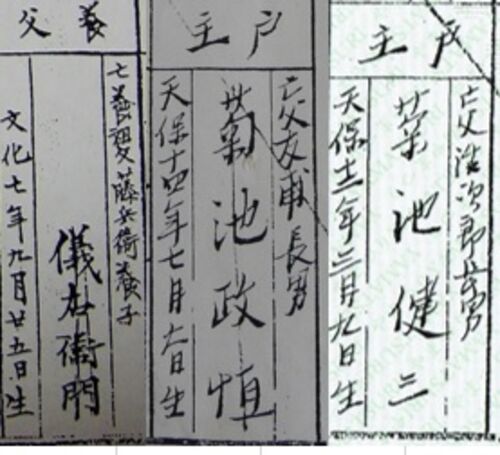 戸主
亡父浩次郎長男
菊池健三
天保十二年三月九日生
戸主
亡父友甫長男
菊池政恒
天保十四年七月六日生
養父
亡養祖父藤兵衛養子
儀右衛門
文化七年九月廿五日生